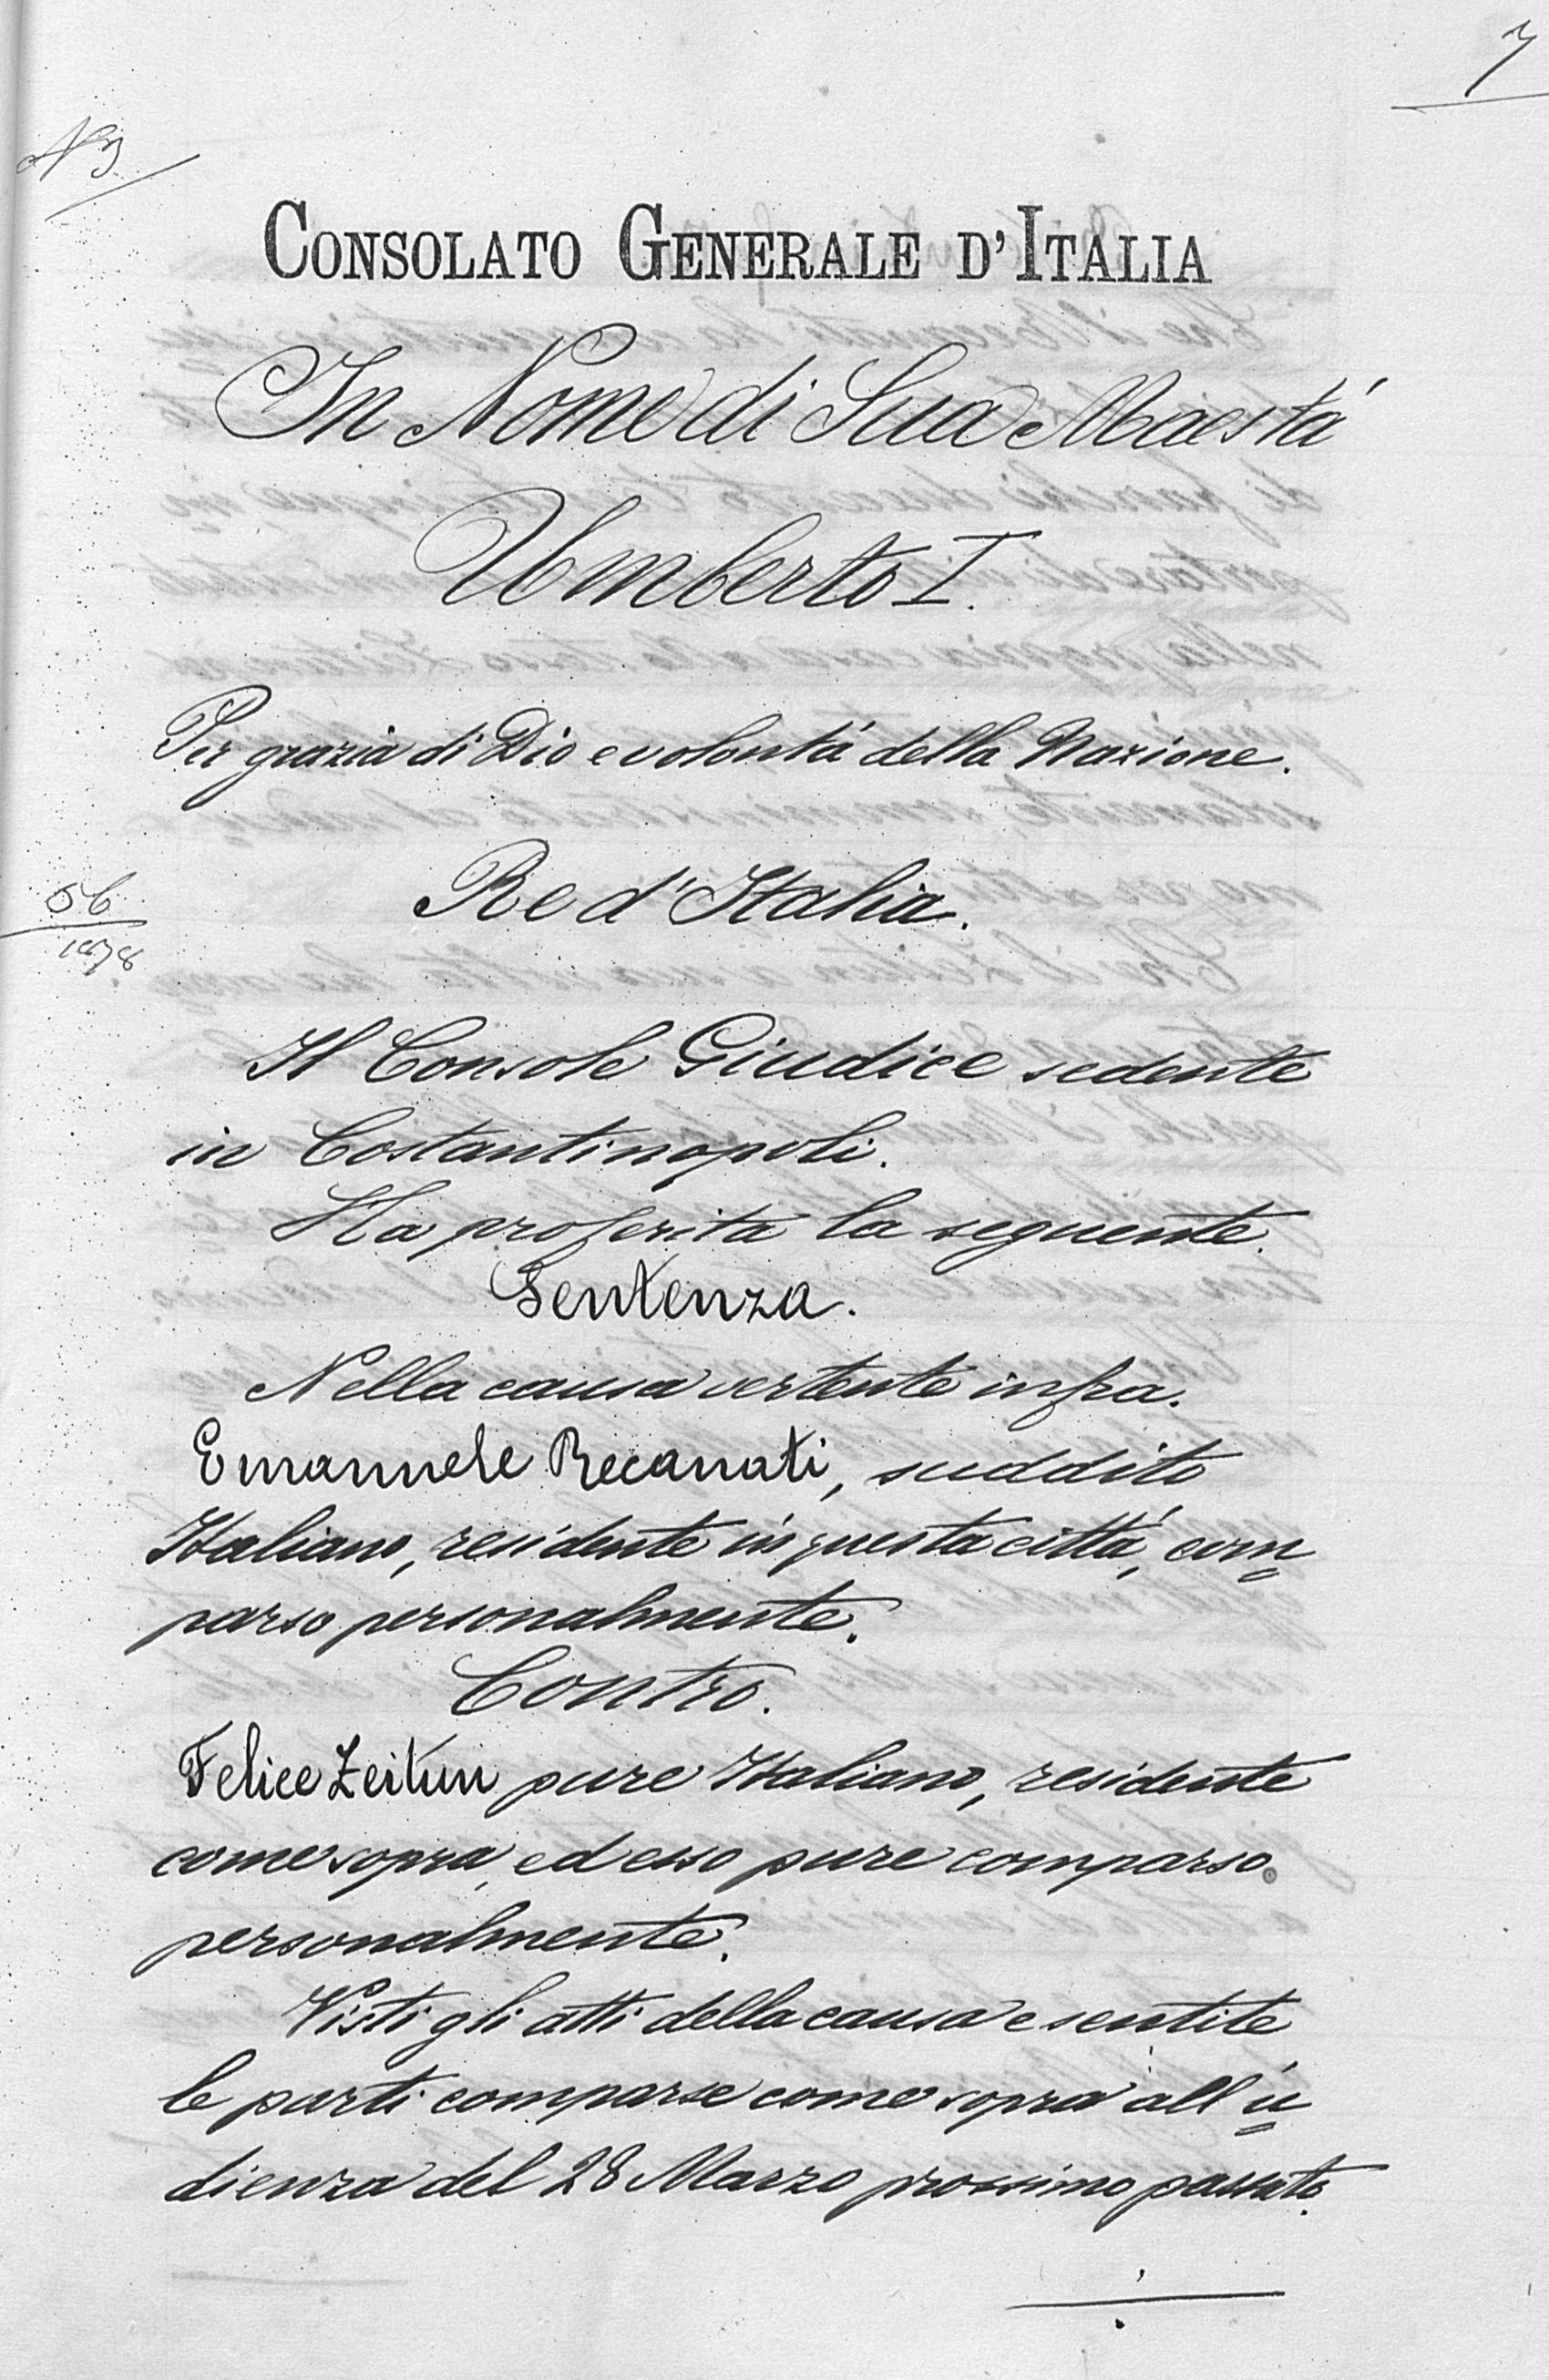 7
N 3
CONSOLATO GENERALE D'ITALIA
In Nome di Sua Maestá
Umberto I.
Per grazia di Dio e volontá della Nazione.
Re d'Italia.
56
1878
Il Console Giudice sedente
in Costantinopoli.
Ha proferita la seguente.
Sentenza.
Nella causa vertente infra.
Emanuele Recanati, suddito
Italiano, residente in questa cittá, com=
parso personalmente.
Contro.
Felice Zeitun pure Italiano, residente
come sopra, ed esso pure comparso
personalmente.
Visti gli atti della causa e sentite
le parti comparse come sopra all'u=
dienza del 28 Marzo prossimo passato.